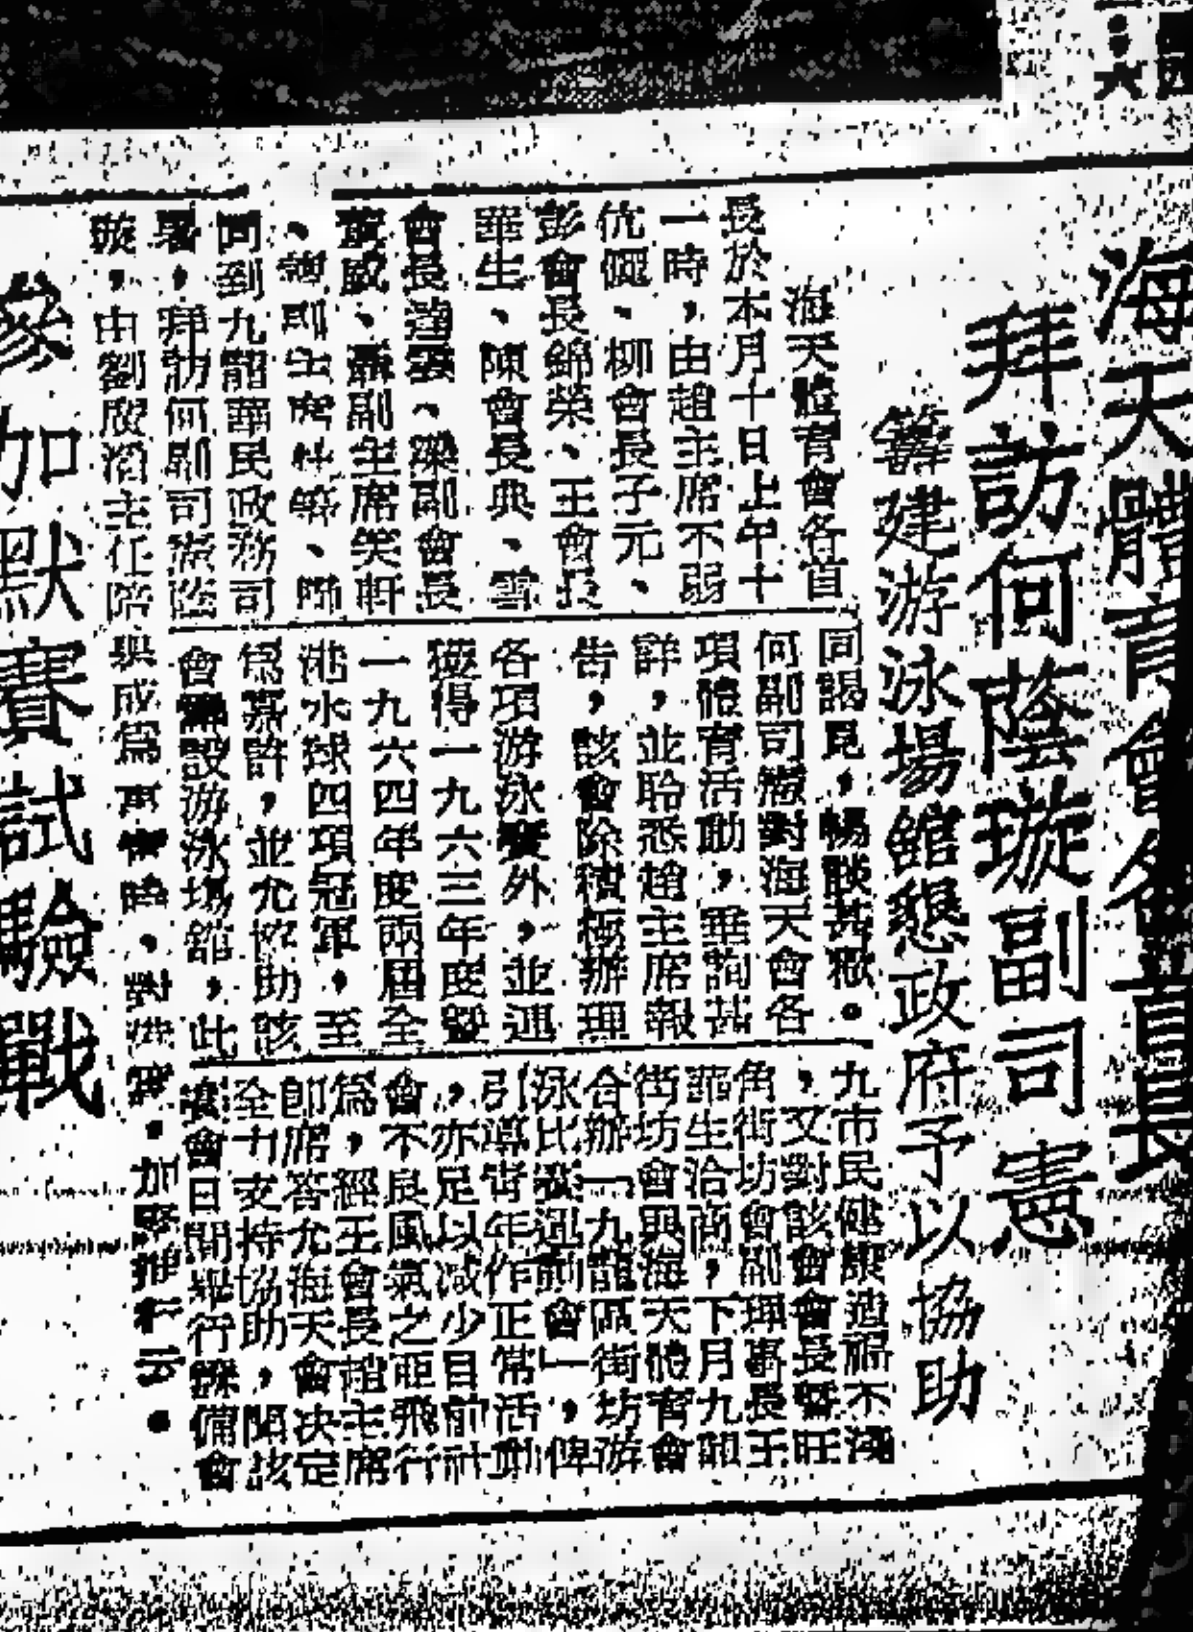 海天體育會各首長
拜訪何蔭璇副司憲
籌建游泳場館懇政府予以協助
海天體育會各首
長於本月十日上午十
一時，由趙主席不弱
伉儷、柳會長子元、
彭會長錦榮、王會長
華生、陳會長典、雲
會長達雲、梁副會長
威、聶副主席笑軒
、副主席、
同到九龍華民政務司
署，拜訪何副司憲蔭
璇，由劉主任陪
同謁見，暢談甚歡。
何副司憲對海天會各
項體育活動，垂詢甚
詳，並聆悉趙主席報
告，該會除積極辦理
各項游泳賽外，並迅
獲得一九六三年度暨
一九六四年度兩屆全
港水球四項冠軍，至
為嘉許，並允協助該
會籌設游泳場館，此
與成為，對
九市民健康造福不淺
，又對該會會長暨旺
角街坊會副理事長王
華生洽商，下月九龍
街坊會與海天體育會
合辦「九龍區街坊游
泳比賽運前會」，俾
引導青年作正常活動
，亦足以減少目前社
會不良風氣之亞飛行
為，經王會長趙主席
即席答允海天會決定
全力支持協助，聞該
會日間舉行籌備會
，加緊推行云。
參加默賽試驗戰